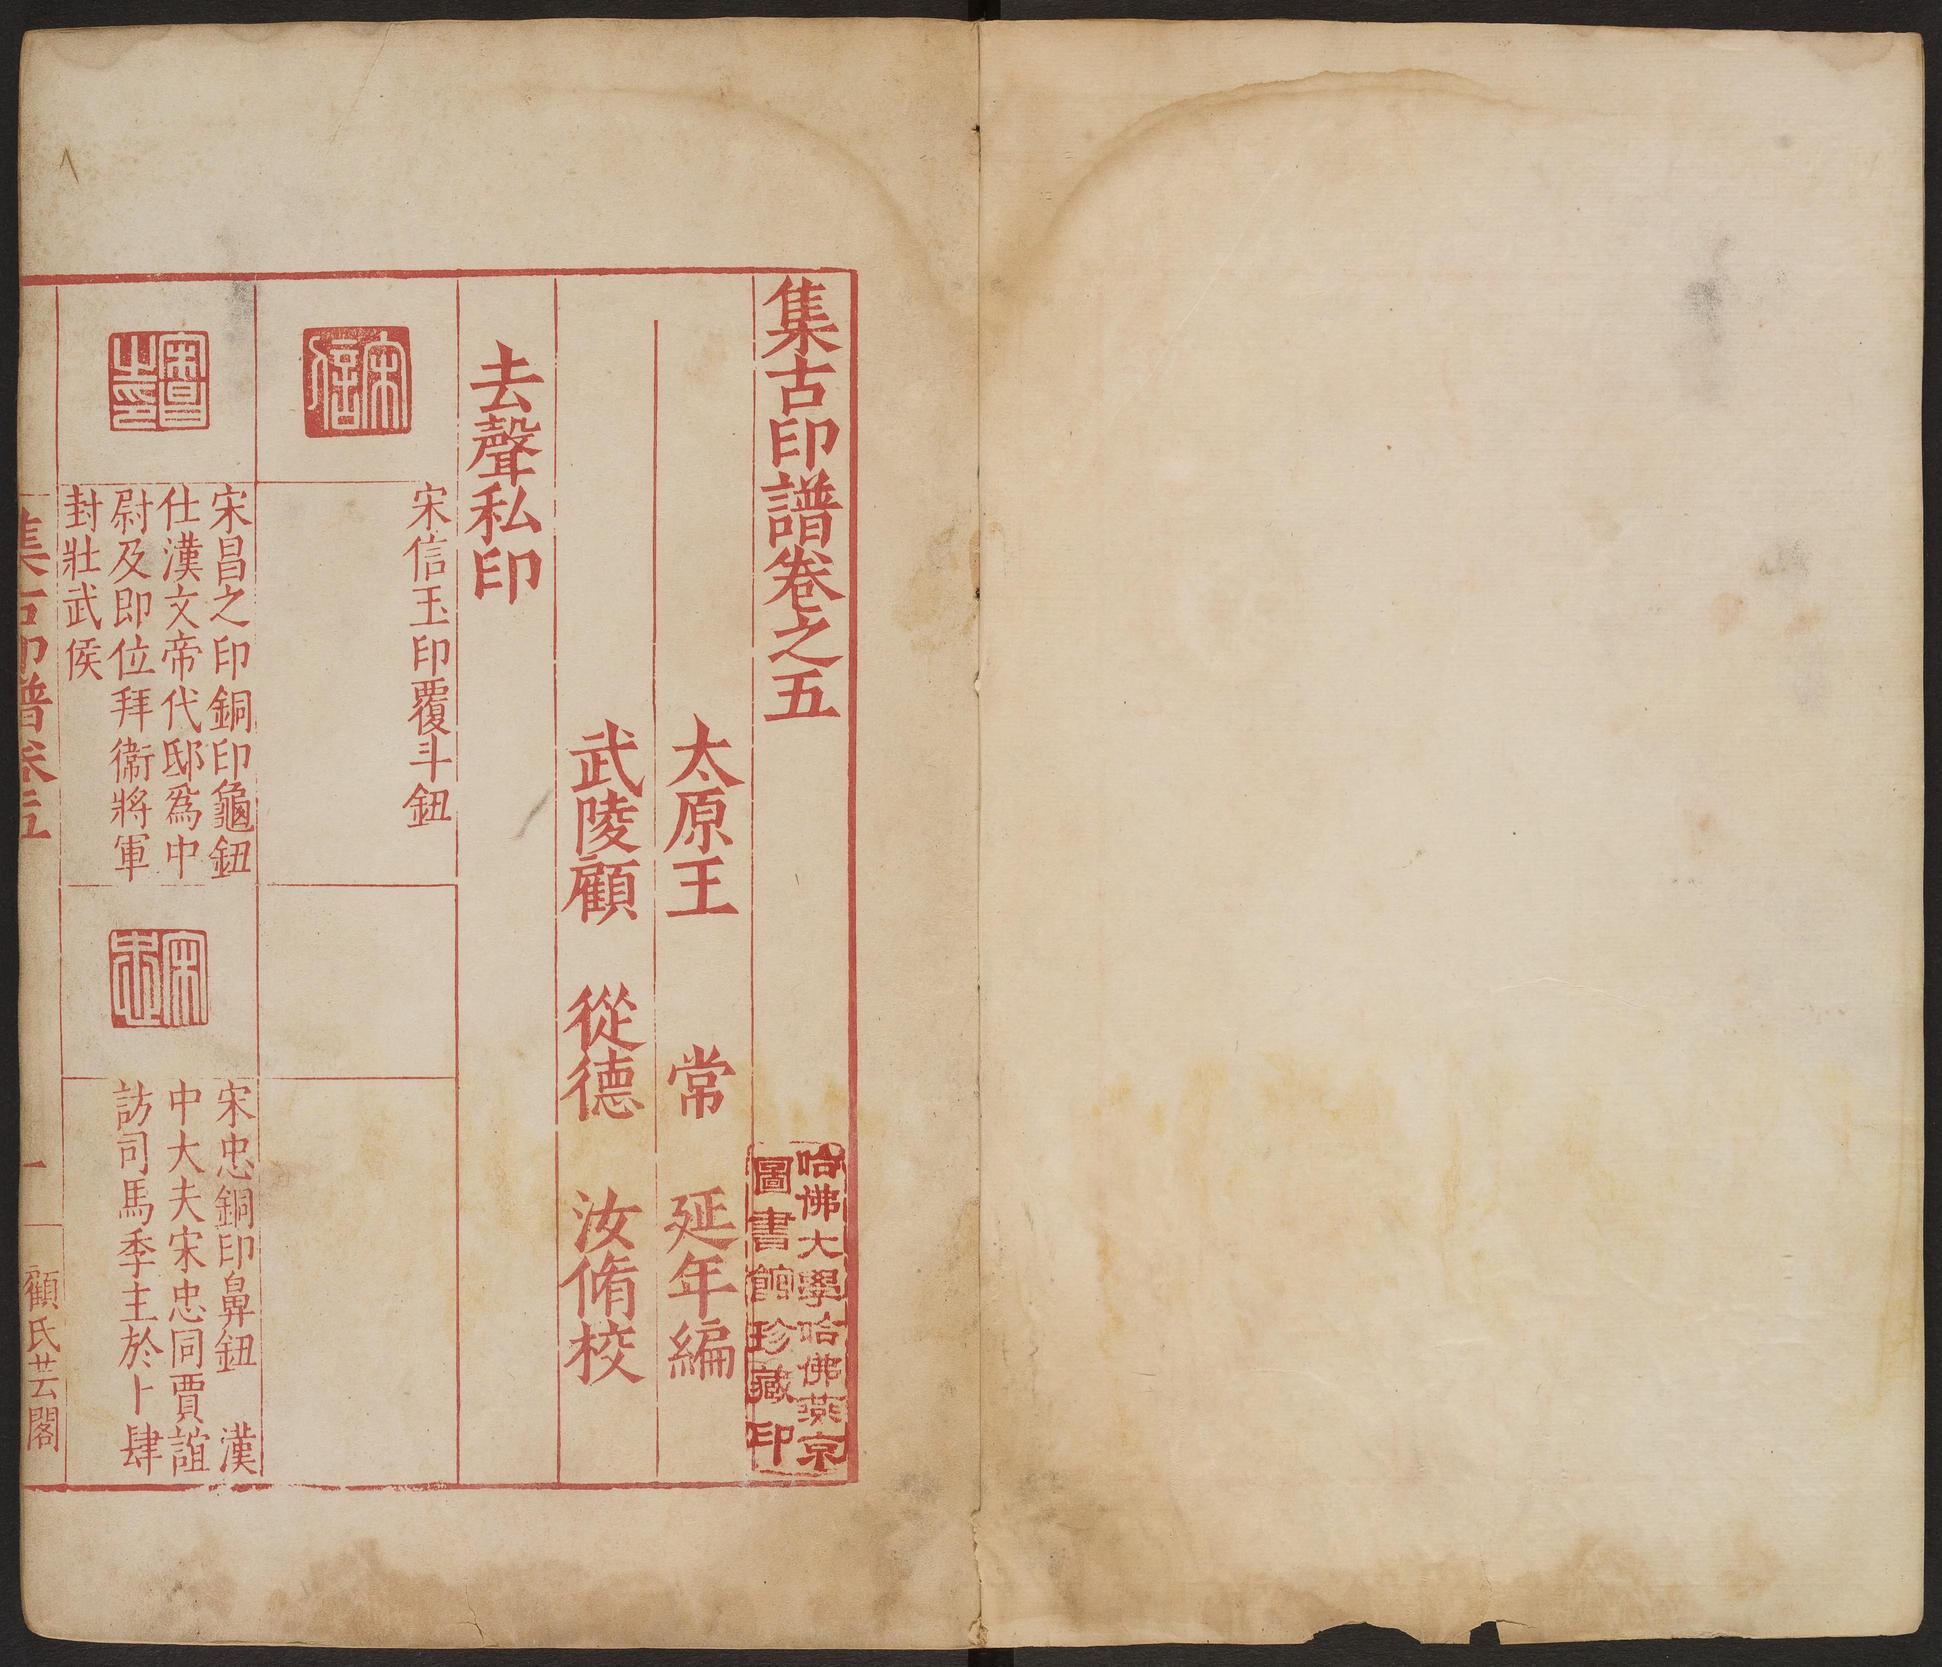 集古印譜卷之五
太原王　常　延年編
武陵顧　從德　汝脩校
去聲私印
宋信
宋信玉印覆斗鈕
宋昌之印
宋昌之印銅印龜鈕
仕漢文帝代邸爲中
尉及即位拜衞將軍
封壯武侯
宋忠
宋忠銅印鼻鈕　漢
中大夫宋忠同賈誼
訪司馬季主於卜肆
集古印譜卷五
一
顧氏芸閣
哈佛大學哈佛燕京
圖書館珍藏印